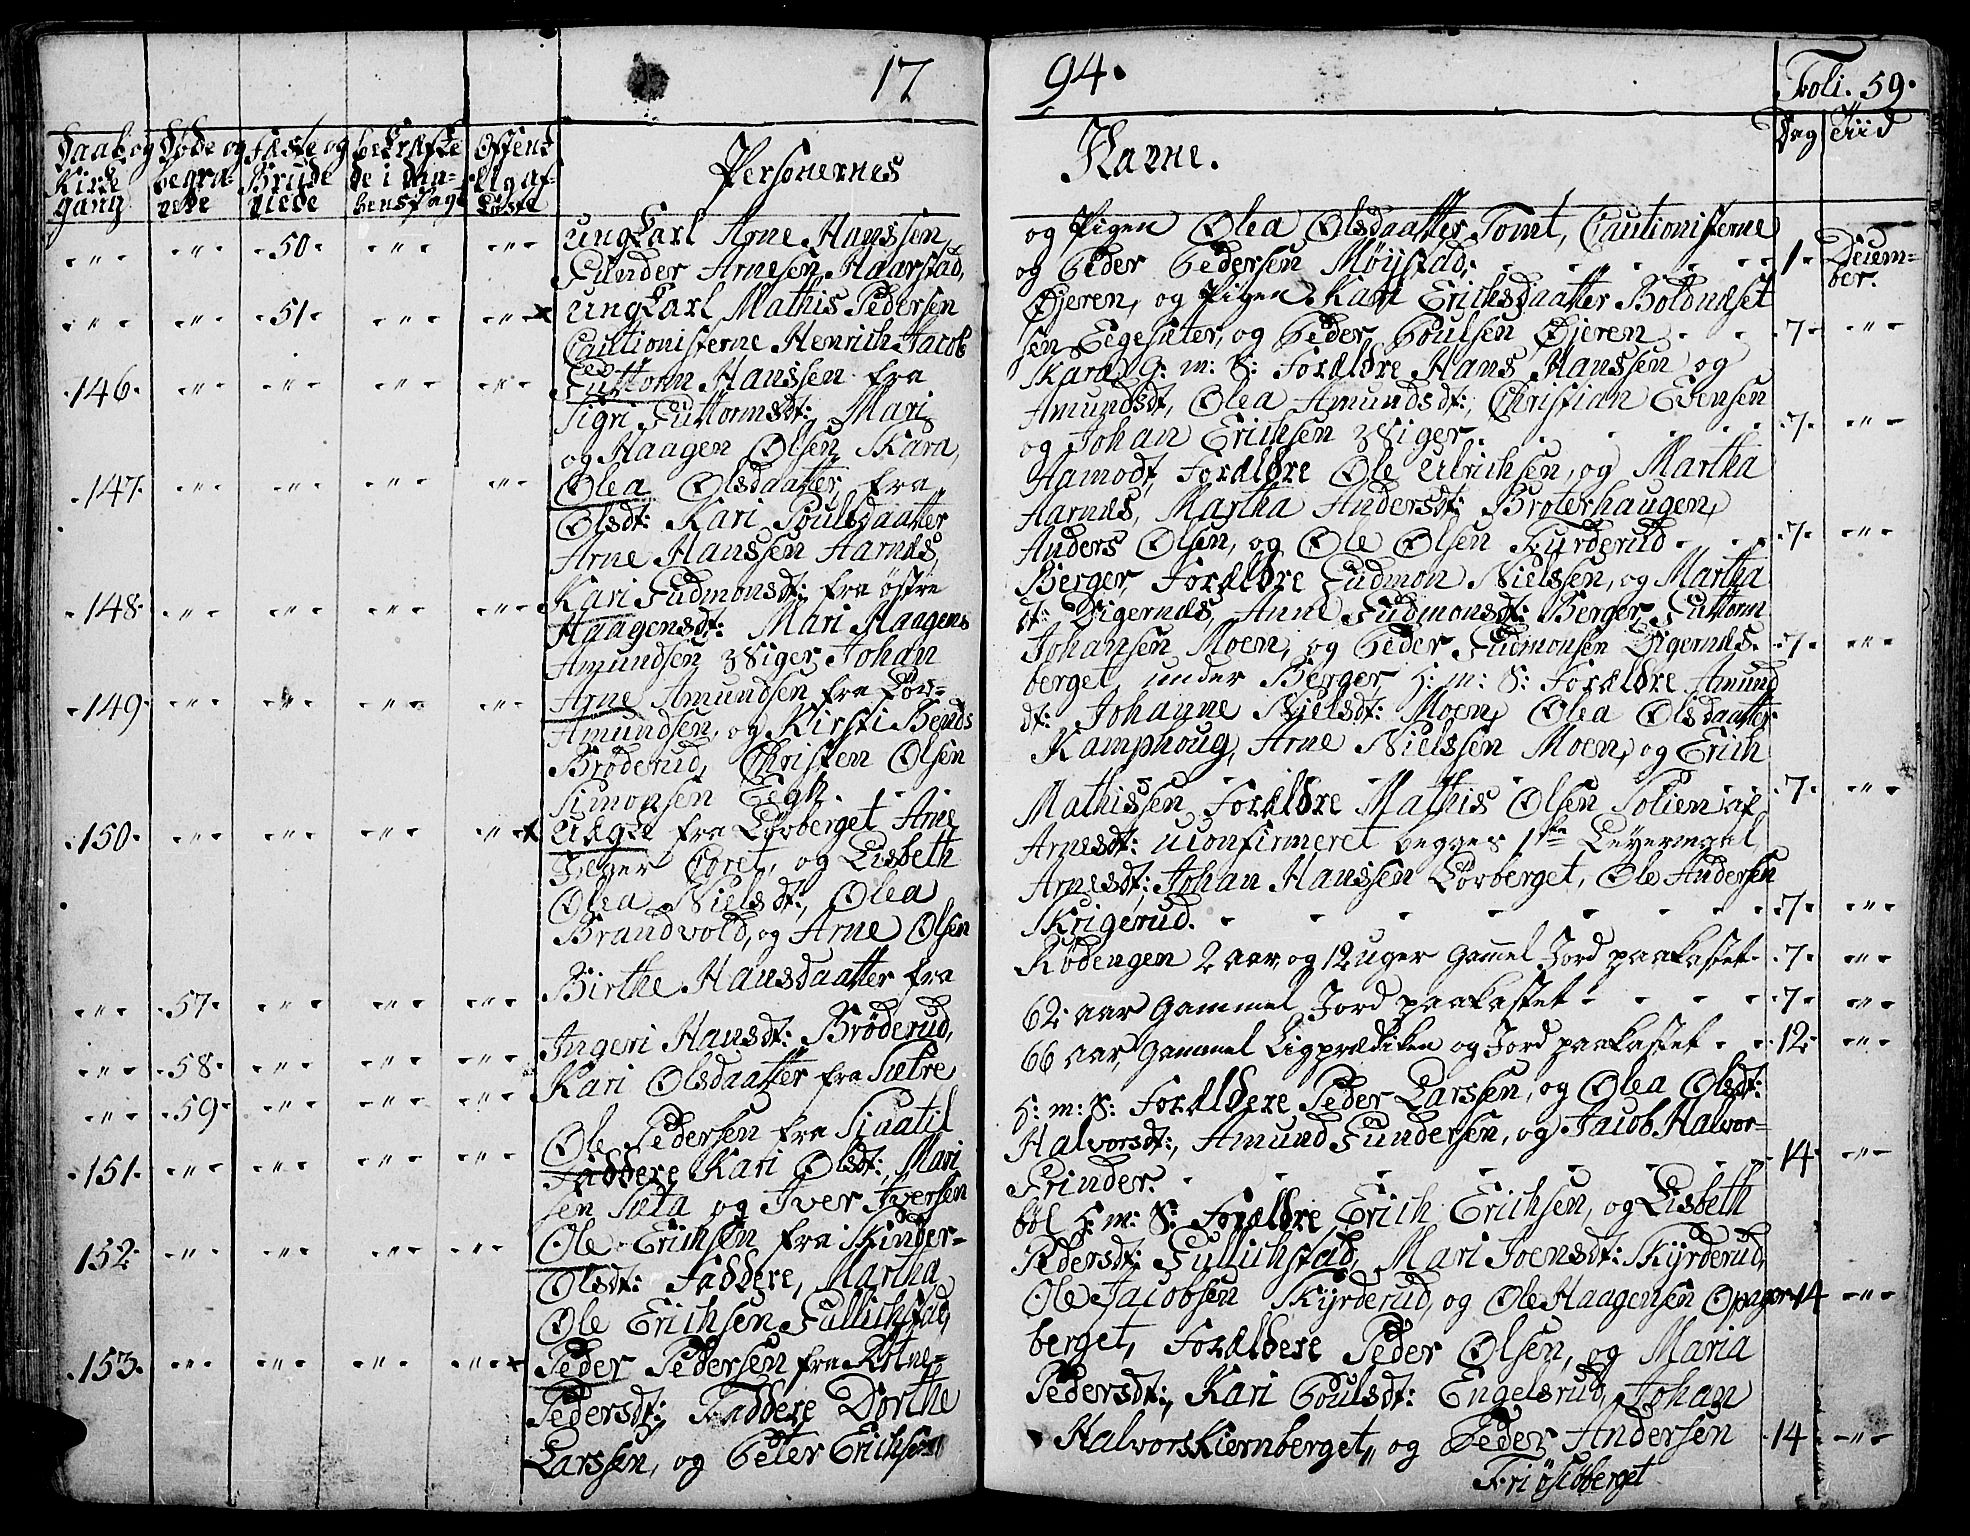 1794.
Foli. 59.
Daab og Kirke gang
Døde og begra- vede
Fæste og Brude viede
bekræfte de i Daa- bens Pagt
Offent- lig af- løste
Personernes Navne.
Dag Tiid
50. ungkarl Arne Hanssen og Pigen Olea Olsdaatter Tomt, Cautionisterne
Gunder Arnesen Haarstad, og Peder Pedersen Møystad; 1. Decem- ber.
51. ungkarl Mathis Pedersen Øjeren, og Pigen Kari Erichsdaatter Boldnæset
Cautionisterne Henrich Jacob sen Eegesæter, og Peder Poulsen Øjeren 7.
146. Guttorm Hanssen fra Skara g: m: S: Forældre Hans Hanssen og
Sigri Guttormsdt:, Mari Amundsdt, Olea Amundsdt:, Christian Evensen
og Haagen Olsen Skara, og Johan Erichsen Wiger. 7.
147. Olea Olsdaatter fra Aamodt, Forældre Ole Ulrichsen, og Martha
Olsdt: Kari Poulsdaatter Aarnæs, Martha Andersdt: Broterhaugen,
Arne Hanssen Aarnæs, Anders Olsen, og Ole Olsen Kyrderud 7.
148. Kari Gudmonsdt: fra østre Berger, Forældre Gudmon Nielssen, og Martha
Haagensdt: Mari Haagens dt: Digernæs, Anne Gudmonsdt: Berger, Guttorm
Amundsen Wiger, Johan Johansen Moen, og Peder Gudmonsen Digernæs. 7.
149. Arne Amundsen fra Løv- berget under Berger, h: m: S: Forældre Amund
Amundsen, og Kirsti Bends dt: Johanne Nielsdt: Moen, Olea Olsdaatter
Brøderud, Christen Olsen Kamphoug, Arne Nielssen Moen, og Erich
Simonsen Eegh. 7.
150. Uægte fra Løvberget Arne Mathissen, Forældre Mathis Olsen Solien af
Jæger Corpet, og Lisbeth Arnesdt: uconfirmeret begges 1ste Leyermaal,
Olea Nielsdt:, Olea Arnesdt: Johan Hanssen Løvberget, Ole Andersen
Brandvold, og Arne Olsen Skrigerud. 7.
57. Birthe Hansdaatter fra Rødengen 2 aar, og 12 uger Gammel Jord paakastet 7.
58. Ingeri Hansdt: Brøderud, 62. aar Gammel Jord paakastet 7.
59. Kari Olsdaatter fra Sætre 66 aar, Gammel Ligprædiken og Jord paakastet 12.
151. Ole Pedersen fra Siaatil h: m: S: Forældere Peder Larssen, og Olea Olsdt:
Faddere Kari Olsdt:, Mari Halvorsdt:, Amund Gundersen, og Jacob Halvor-
sen Sæta og Iver Iversen Grinder. 14.
152. Ole Erichsen fra Skinder- bøl h: m: S: Forældre Erich Erichsen, og Lisbeth
Olsdt: Faddere, Martha Pedersdt: Gullichstad, Mari Joensdt: Skyrderud,
Ole Erichsen Gullichstad, Ole Jacobsen Skyrderud, og Ole Haagensen Opager 14
153. Peder Pedersen fra Rotne- berget, Forældere Peder Olsen, og Maria
Pedersdt:, Faddere Dorthe Pedersdt:, Kari Poulsdt: Engelsrud, Johan
Larssen, og Peter Erichsen Halvorskiernberget, og Peder Andersen 14
Friøsedberget